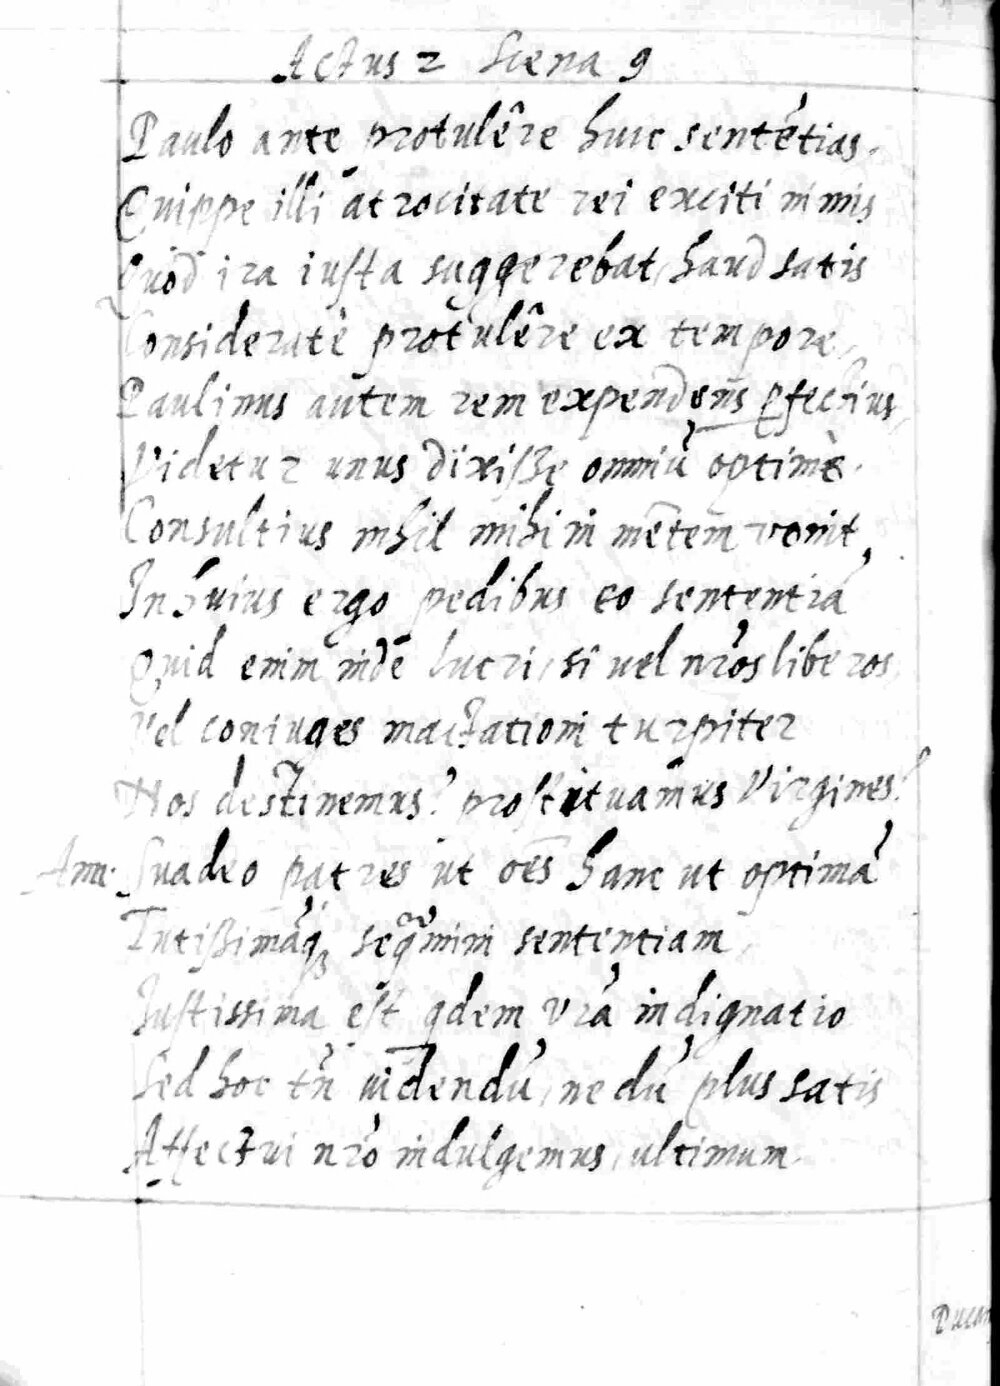 Actus 2 Scena 9
Paulo ante protulêre huic sentẽtias.
Quippe illi atrocitate rei exciti nimis
Quod ira iusta suggerebat, haud satis
Consideratè protulêre ex tempore,
Paulinus autem rem expendens pfectius,
Videtur unus dixiße omniũ optimè.
Consultius nihil mihi in mẽtem venit,
In huius ergo pedibus eo sententiã
Quid enim inde lucri, si vel nr̃os liberos,
Vel coniuges mactationi turpiter
Nos destinemus? prostituamus Virgines?
Ann. Suadeo patres ut oẽs hanc ut optimã
Tutißimãq; seq̃mini sententiam,
Iustissima est qdem vr̃a indignatio
Sed hoc tñ videndũ, ne dũ plus satis
Affectui nr̃o indulgemus, ultimum.